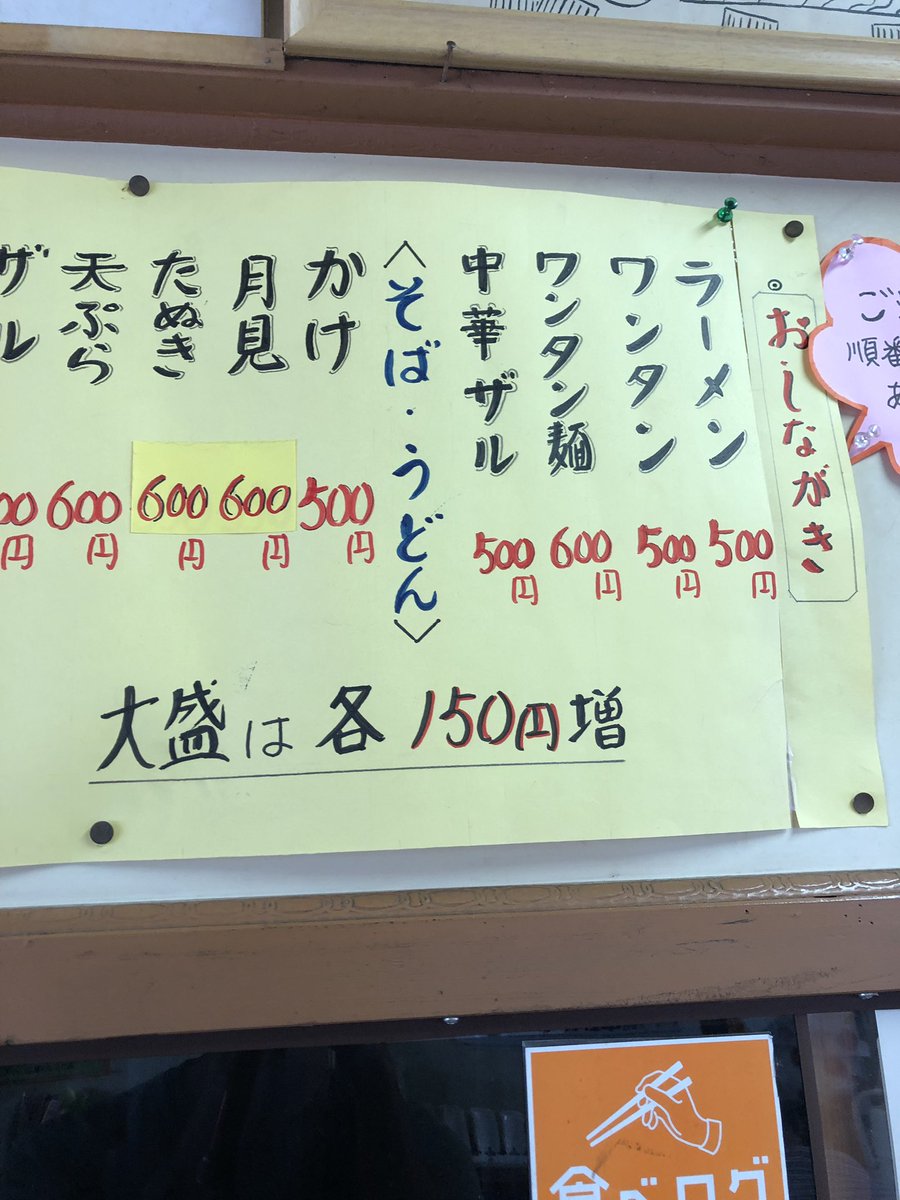 お・しながき
ラーメン 500円
ワンタン 500円
ワンタン麺 600円
中華ザル 500円
〈そば・うどん〉
かけ 500円
月見 600円
たぬき 600円
天ぷら 600円
ザル 00円
大盛は各150円増
順番
食べログ